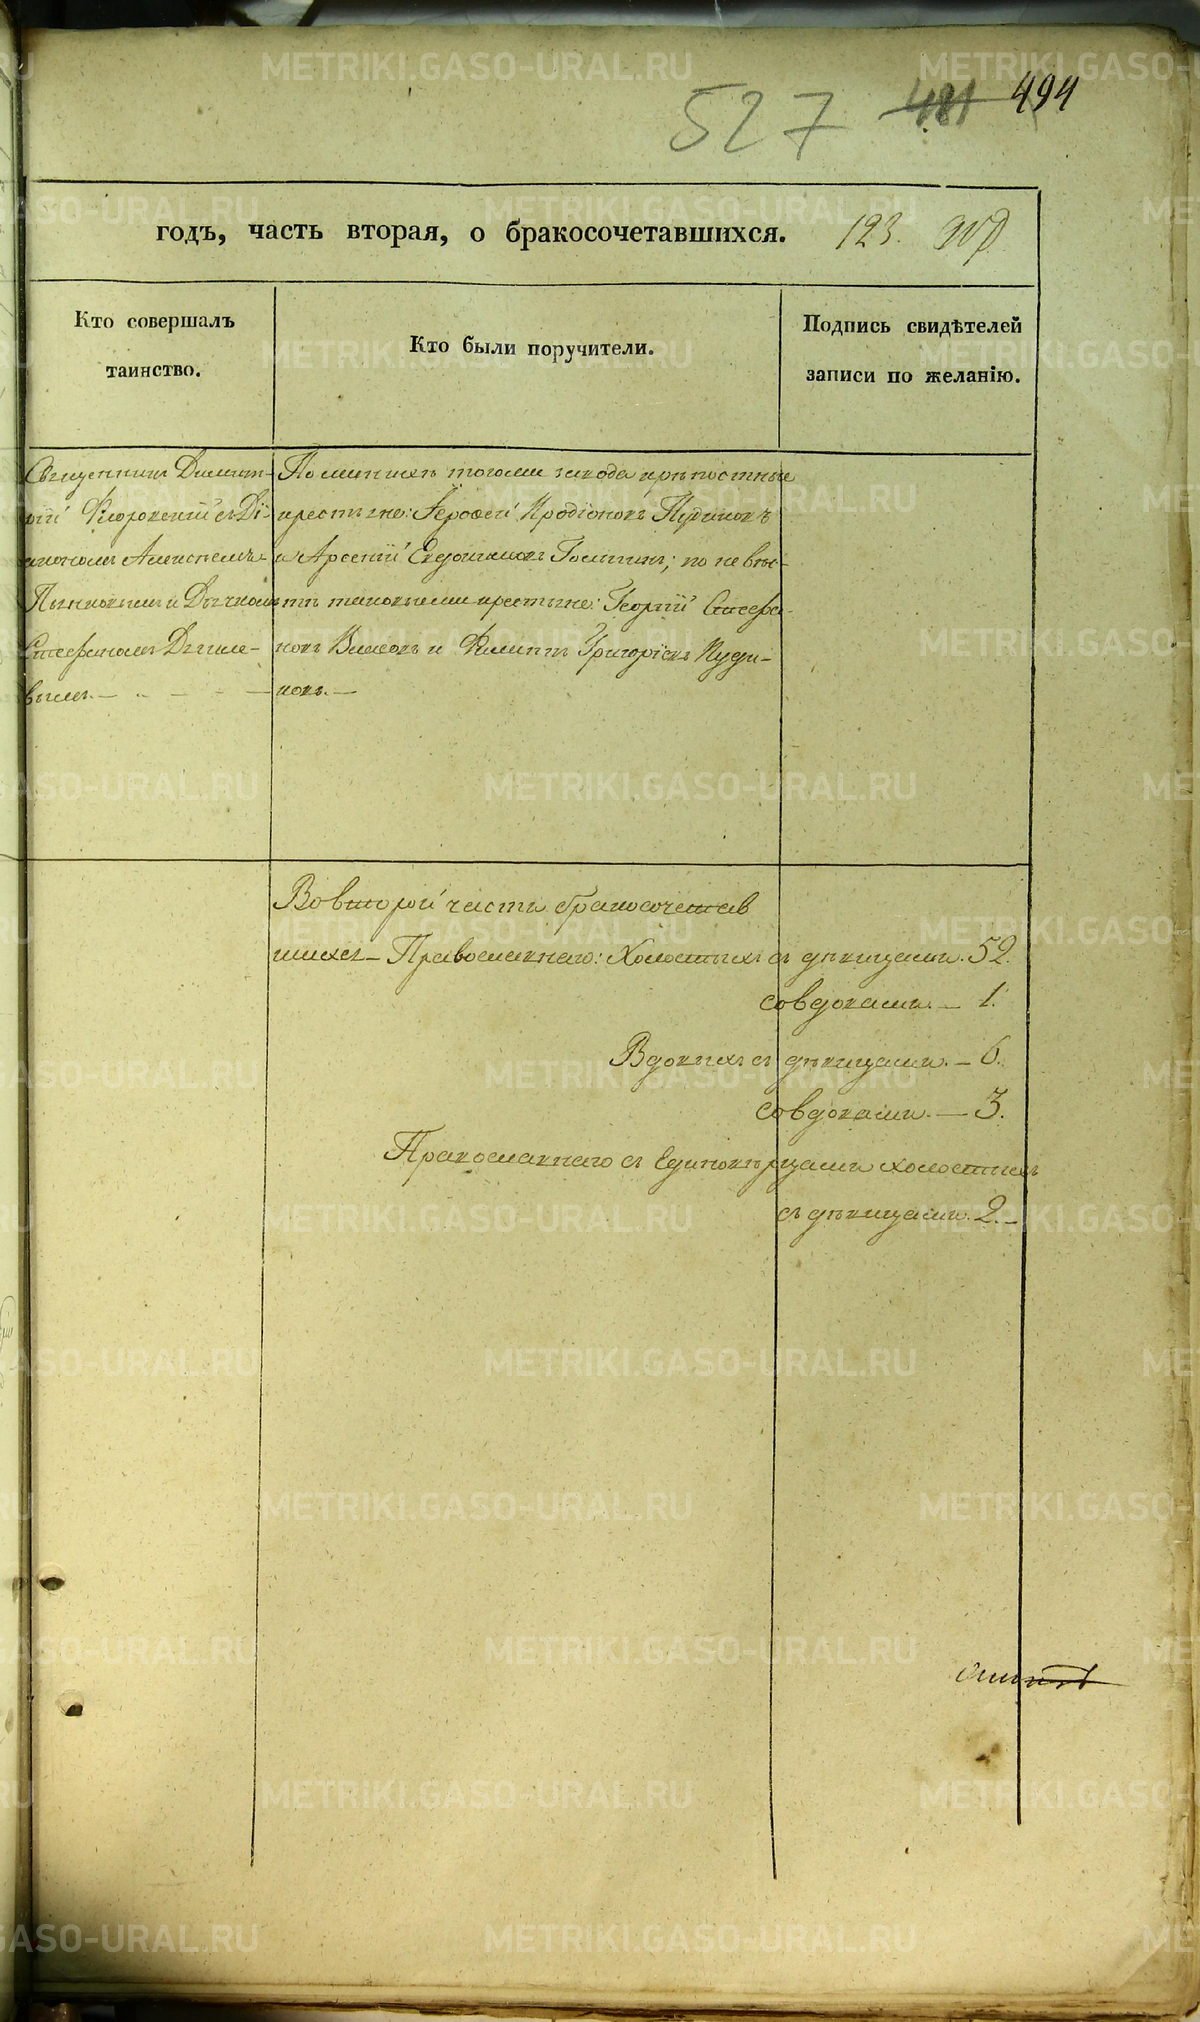 527 481 494
годъ, часть вторая, о бракосочетавшихся. 123.
Кто совершалъ
таинство.
Кто были поручители.
Подпись свидѣтелей
записи по желанію.
Священникъ Димит-
рій съ Ді-
акономъ Алексѣемъ
и Дьячкомъ
Стефаномъ
вымъ.
По женихѣ тогоже завода крѣпостные
крестьяне: Іерофей Иродіоновъ Кудиновъ
и Арсеній Евдокимовъ; по невѣс-
тѣ таковыеже крестьяне: Георгій Стефа-
новъ и Филиппъ Григоріевъ Куди-
новъ.
Во второй части бракосочетав
шихся Православнаго: Холостыхъ съ дѣвицами. 52.
со вдовами. 1.
Вдовыхъ съ дѣвицами. 6.
со вдовами. 3.
Православнаго съ Единовѣрцами холостыхъ
съ дѣвицами. 2.
METRIKI.GASO-URAL.RU